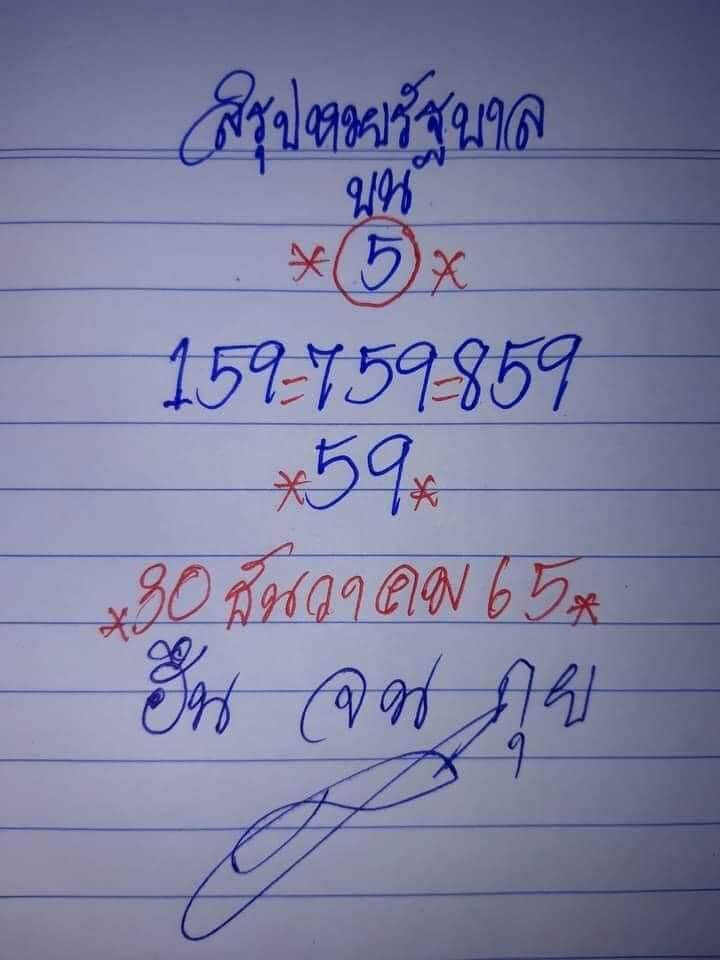 สรุปหวยรัฐบาล
บน
* 5 *
159=759=859
*59*
*30 ธันวาคม 65*
ฮั้น จน กุย